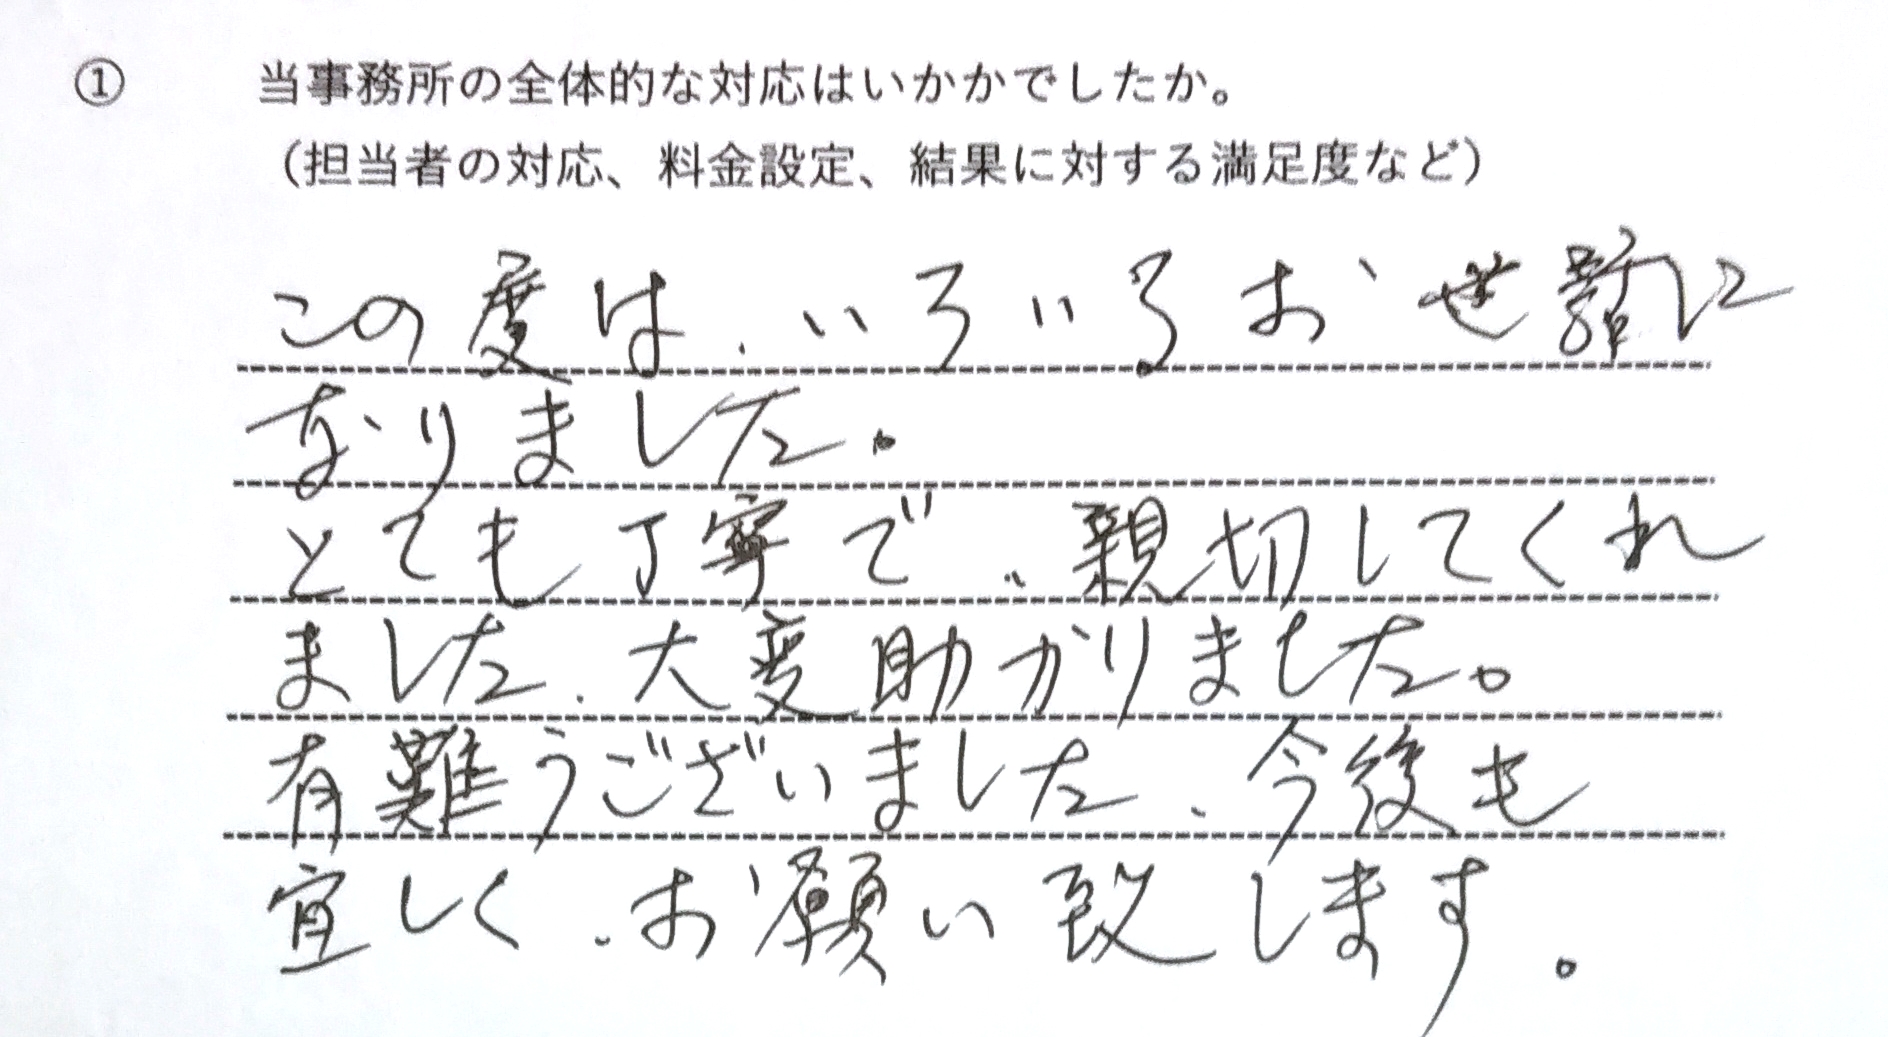 ① 当事務所の全体的な対応はいかかでしたか。
（担当者の対応、料金設定、結果に対する満足度など）
この度は、いろいろお世話に
なりました。
とても丁寧で、親切してくれ
ました、大変助かりました。
有難うございました、今後も
宜しく、お願い致します。